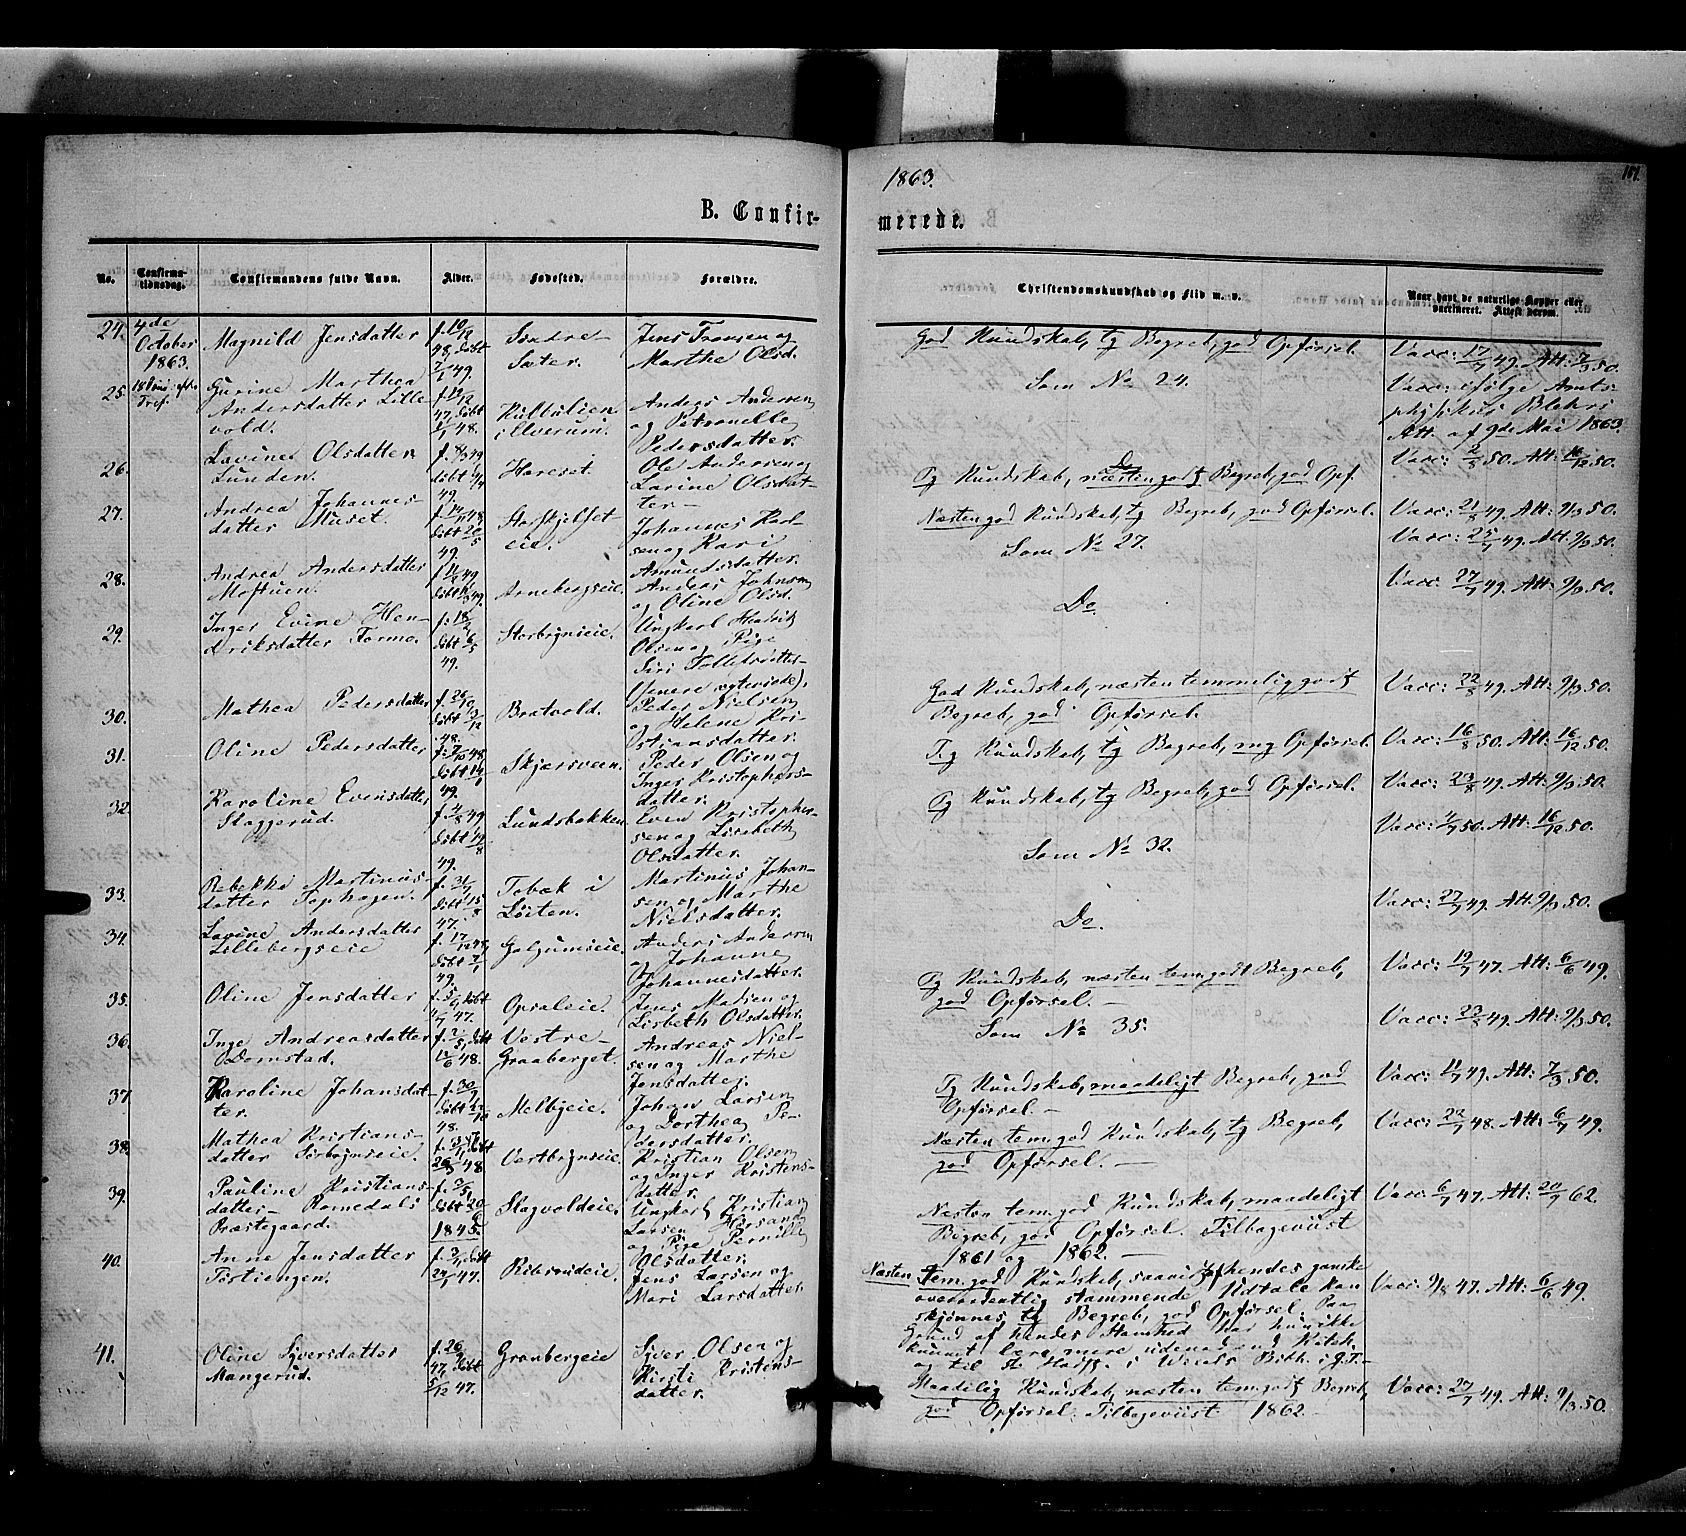 1863.
B. Confir-
merede.
No.
Confirma-
tionsdag.
Confirmandens fulde Navn.
Alder.
Fødested.
Forældre.
Christendomskundskab og Flid m. v.
Naar havt de naturlige Kopper eller
vaccineret. Attest derom.
24. 4de
October
1863.
Magnild Jensdatter
f. 10/12
48, døbt
1/1 49.
Søndre-
Sæter.
Jens Fransen og
Marthe Olsd.
God Kundskab, tg Begreb, god Opførsel.
Vacc: 17/7 49. Att: 7/3 50.
25.
Gurine Marthea
Andersdatter Lille
vold.
47, døbt
1/1 48.
i Elverum.
Anders Andersen
og Petronelle
Pedersdatter.
Som No 24.
Vacc: ifølge Amts-
physikus
Att. af 9de Mai 1863.
26.
Lovine Olsdatter
Lunden.
døbt
49.
Horeset
Ole Andersen og
Larine Olsdat-
ter -
Do
Tg Kundskab, næsten godt Begreb, god Opf.
Vacc: 2/5 50. Att: 16/12 50.
27.
Andrea Johannes-
datter Muset.
døbt 20/5
49.
eie.
Johannes Karl-
sen og Kari
Amundsdatter.
Næsten god Kundskab, tg Begreb, god Opførsel.
Vacc: 21/8 49. Att: 9/3 50.
28.
Andrea Andersdatter
Moftuen.
døbt
Arnebergseie.
Anders Johnsen
og Oline Olsd.
Som No 27.
Vacc: 25/7 49. Att. 9/3 50.
29.
Inger Evine Hen-
driksdatter Formo.
f. 18/2
døbt 6/5
49.
Storbynseie.
Ungkarl Hendrik
Olsen og Pige
Siri
(senere ægteviede).
Do.
Vacc: 27/7 49. Att: 9/3 50.
30.
Mathea Pedersdatter
f. 26/10
døbt 3/12
48.
Bratvold.
Peder Nielsen
og Helene Kri-
stiansdatter.
God Kundskab, næsten temmelig godt
Begreb, god Opførsel.
Vacc: 22/8 49. Att: 9/3 50.
31.
Oline Pedersdatter
døbt 14/1
49.
Skjærsveen.
Peder Olsen og
Inger Kristophers-
datter.
Tg Kundskab, tg Begreb, mg Opførsel.
Vacc: 16/8 50. Att: 16/12 50.
32.
Karoline Evensdatter
Staggerud.
f. 4/8 49
døbt 19/8
49.
Lundsbakken.
Even Kristopher-
sen og Lisebeth
Olsdatter.
Tg Kundskab, tg Begreb, god Opførsel.
Vacc: 23/8 49. Att: 9/3 50.
33.
Rebekka Martinus-
datter Tophagen.
f. 31/7
døbt 15/8
47.
Tobæk i
Løiten.
Martinus Johan-
sen og Marthe
Nielsdatter.
Som No 32.
Vacc: 4/7 50. Att: 16/12 50.
34.
Lovine Andersdatter
Lillebergseie
f. 17/12 48,
døbt 7/1
49.
Galgumseie.
Anders Andersen
og Johanne
Johannesdatter.
Do.
Vacc: 27/7 49. Att. 9/3 50.
35.
Oline Jensdatter
47.
Opsaleie.
Jens Matsen og
Lisbeth Olsdatter.
Tg Kundskab, næsten tem. godt Begreb,
god Opførsel. -
Vacc: 19/7 47. Att: 6/6 49.
36.
Inge Andreasdatter
Dørnstad.
48.
Vestre-
Graaberget.
Andreas Niel-
sen og Marthe
Jensdatter.
Som No 35.
Vacc: 23/8 49. Att: 9/3 50.
37.
Karoline Johansdat-
ter.
f. 30/9
døbt
48.
Melbyeie.
Johan Larsen
og Dorthea Pe-
dersdatter.
Tg Kundskab, maadeligt Begreb, god
Opførsel. -
Vacc: 11/7 49. Att: 7/3 50.
38.
Mathea Kristians-
datter Sørbynseie.
døbt
26/3 48
Vestbynseie.
Kristian Olsen
og Inger Kristens-
datter.
Næsten tem. god Kundskab, tg Begreb,
god Opførsel. -
Vacc: 22/7 48. Att: 6/7 49.
39.
Pauline Kristians-
datter - Romedals
Præstegaard.
døbt 20
1845.
Skogvoldeie.
Ungkarl Kristian
Larsen
og Pige Pernille
Olsdatter.
Næsten tem. god Kundskab, maadeligt
Begreb, god Opførsel. Tilbageviist
1861 og 1862. -
Vacc: 6/7 47. Att: 20/7 62.
40.
Anne Jensdatter
Tistiengen.
døbt
47.
Ribsrudeie.
Jens Larsen og
Mari Larsdatter.
Næsten tem. god Kundskab, saavidt af hendes ganske
overordentlig stammende Udtale kan
skjønnes tg Begreb, god Opførsel. Paa
Grund af hendes Stamhed har hun ikke
kunnet lære mere udenad end Katek.
og til
Vacc: 9/8 47. Att: 6/6 49.
41.
Oline Syversdatter
Mangerud.
f. 26/9
47, døbt
5/12 47.
Granbergeie
Syver Olsen og
Kirsti Kristens-
datter.
Maadelig Kundskab, næsten tem. godt Begreb,
god Opførsel. Tilbageviist 1862.
Vacc: 27/7 49. Att: 9/3 50.